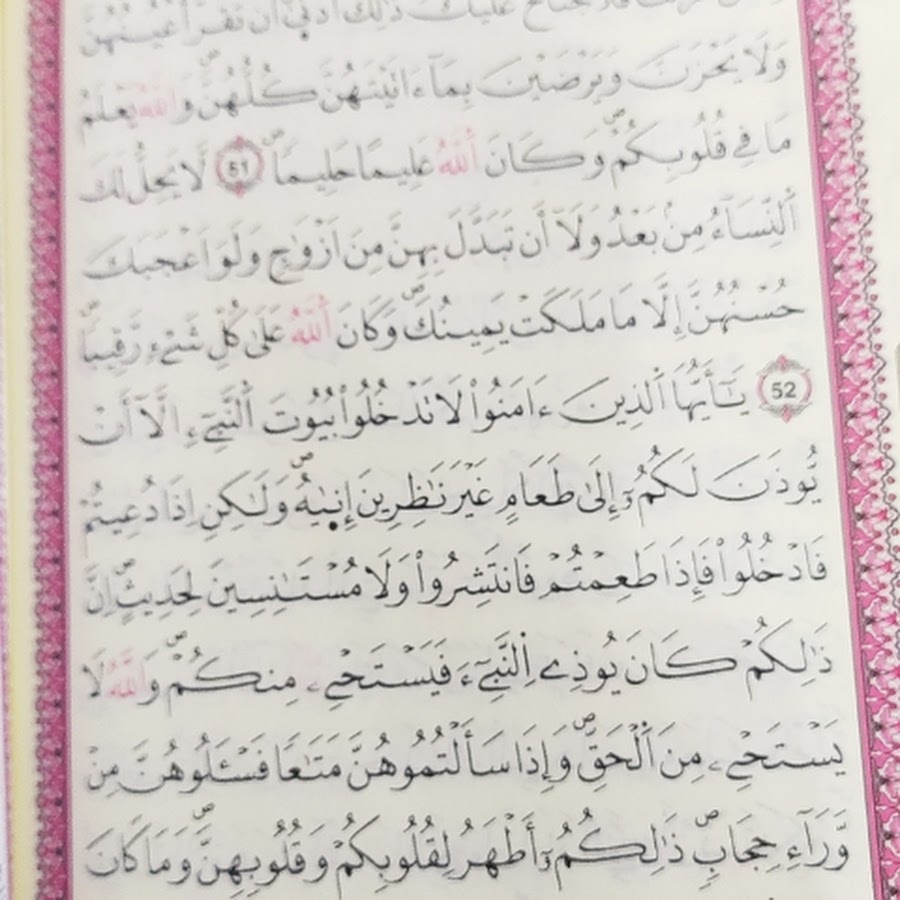 عَلَيْكَ ذَٰلِكَ أَدْنَىٰ أَن تَقَرَّ أَعْيُنُهُنَّ
وَلَا يَحْزَنَّ وَيَرْضَيْنَ بِمَآ ءَاتَيْتَهُنَّ كُلُّهُنَّۖ وَاللَّهُ يَعْلَمُ
مَا فِي قُلُوبِكُمْۖ وَكَانَ اَللَّهُ عَلِيمًا حَلِيمًاۖ 51 لَّا يَحِلُّ لَكَ
اَلنِّسَآءُ مِنۢ بَعْدُ وَلَآ أَن تَبَدَّلَ بِهِنَّ مِنَ اَزْوَٰجٍ وَلَوَ اَعْجَبَكَ
حُسْنُهُنَّ إِلَّا مَا مَلَكَتْ يَمِينُكَۖ وَكَانَ اَللَّهُ عَلَىٰ كُلِّ شَےْءٍ رَّقِيباًۖ
52 يَٰٓأَيُّهَا اَلَّذِينَ ءَامَنُواْ لَا تَدْخُلُواْ بُيُوتَ اَلنَّبِےٓءِ الَّآ أَنْ
يُّوذَنَ لَكُمُۥٓ إِلَىٰ طَعَامٍ غَيْرَ نَٰظِرِينَ إِنٜيٰهُۖ وَلَٰكِنِ اِذَا دُعِيتُمْ
فَادْخُلُواْ فَإِذَا طَعِمْتُمْ فَانتَشِرُواْ وَلَا مُسْتَٰنِسِينَ لِحَدِيثٍۖ اِنَّ
ذَٰلِكُمْ كَانَ يُوذِے اِلنَّبِےٓءَ فَيَسْتَحْےِۦ مِنكُمْۖ وَاللَّهُ لَا
يَسْتَحْےِۦ مِنَ اَلْحَقِّۖ وَإِذَا سَأَلْتُمُوهُنَّ مَتَٰعًا فَسْـَٔلُوهُنَّ مِنْ
وَّرَآءِ حِجَابٍۖ ذَٰلِكُمُۥٓ أَطْهَرُ لِقُلُوبِكُمْ وَقُلُوبِهِنَّۖ وَمَا كَانَ